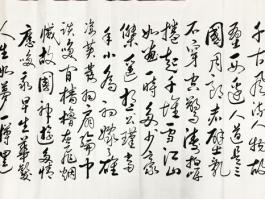 千古風流人物故
壘西邊人道是三
國周郎赤壁亂
石穿空驚濤拍岸
捲起千堆雪江山
如畫一時多少豪
傑遙想公瑾當
年小喬初嫁了雄
姿英發羽扇綸巾
談笑間檣櫓灰飛煙
滅故國神遊多情
應笑我早生華髮
人生如夢一樽還